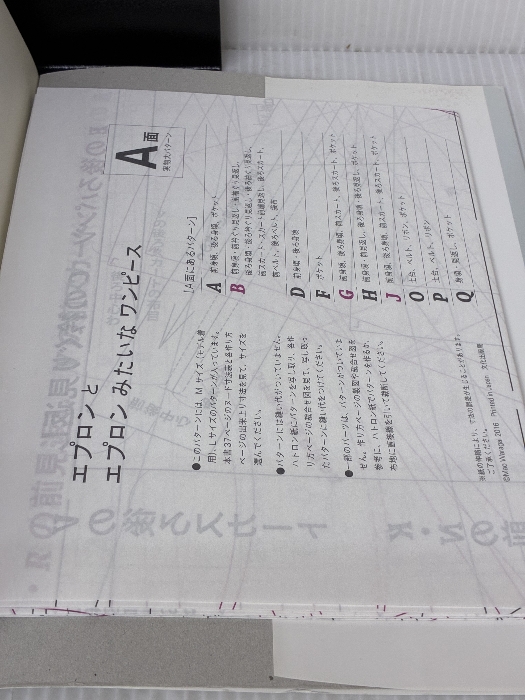 エプロンと
エプロンみたいなワンピース
A面
実物大パターン
●このパターンには、M サイズ(モデル着
用)、L サイズのパターンが入っています。
本書37ページのヌード寸法表と各作り方
ページの出来上り寸法を見て、サイズを
選んでください。
●パターンには縫い代がついていません。
ハトロン紙にパターンを写し取り、各作
り方ページの裁合せ図を見て、写し取っ
たパターンに縫い代をつけてください。
●一部のパーツは、パターンがついていま
せん。作り方ページの製図や裁合せ図を
参考に、ハトロン紙でパターンを作るか、
布地に直接線を引いて裁断してください。
[A面にあるパターン]
A 前身頃、後ろ身頃、ポケット
B
D 前身頃・後ろ身頃
F ポケット
G 前身頃、後ろ身頃、前スカート、後ろスカート、ポケット
H 前身頃・前見返し、後ろ身頃・後ろ見返し、ポケット
J 前身頃、後ろ身頃、前スカート、後ろスカート、ポケット
O 土台、ベルト、リボン、ポケット
P 土台、ベルト、リボン
Q 身頃、見返し、ポケット
用紙の伸縮により、寸法の誤差が生じることがあります。
ご了承ください。
©Mao Waraga 2016 Printed in Japan 文化出版局